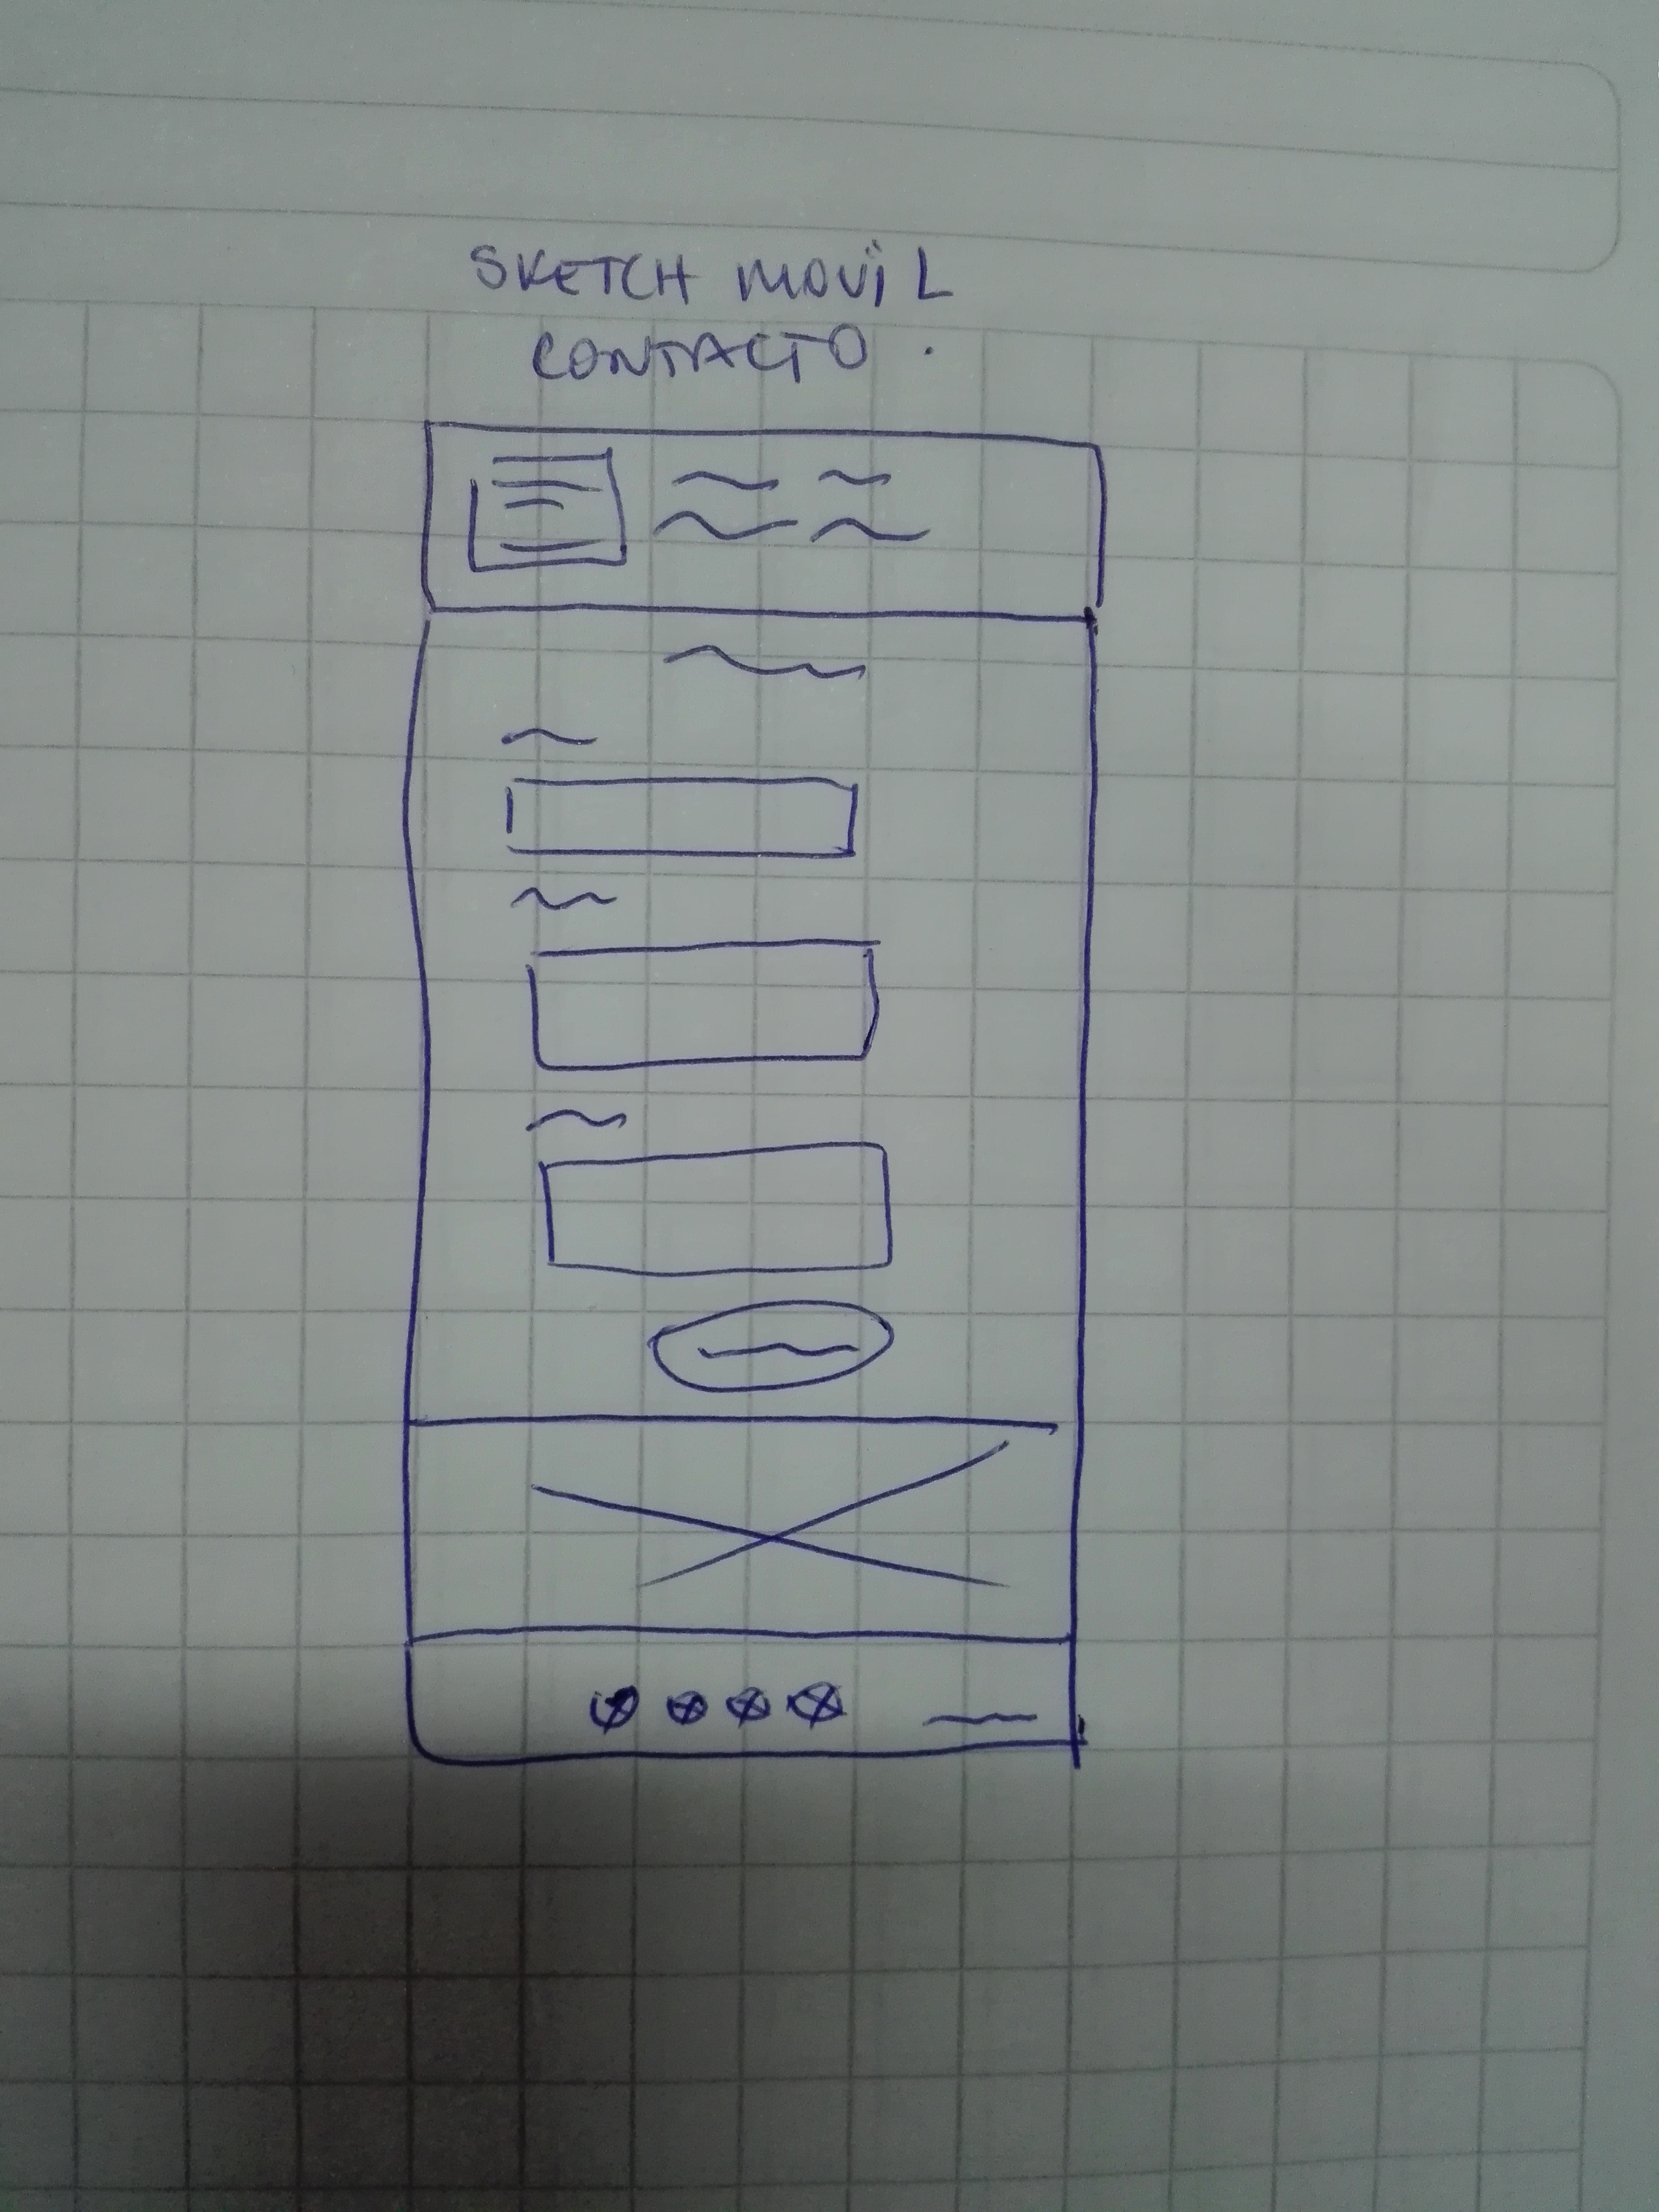 SKETCH MOViL
CONTACTO.